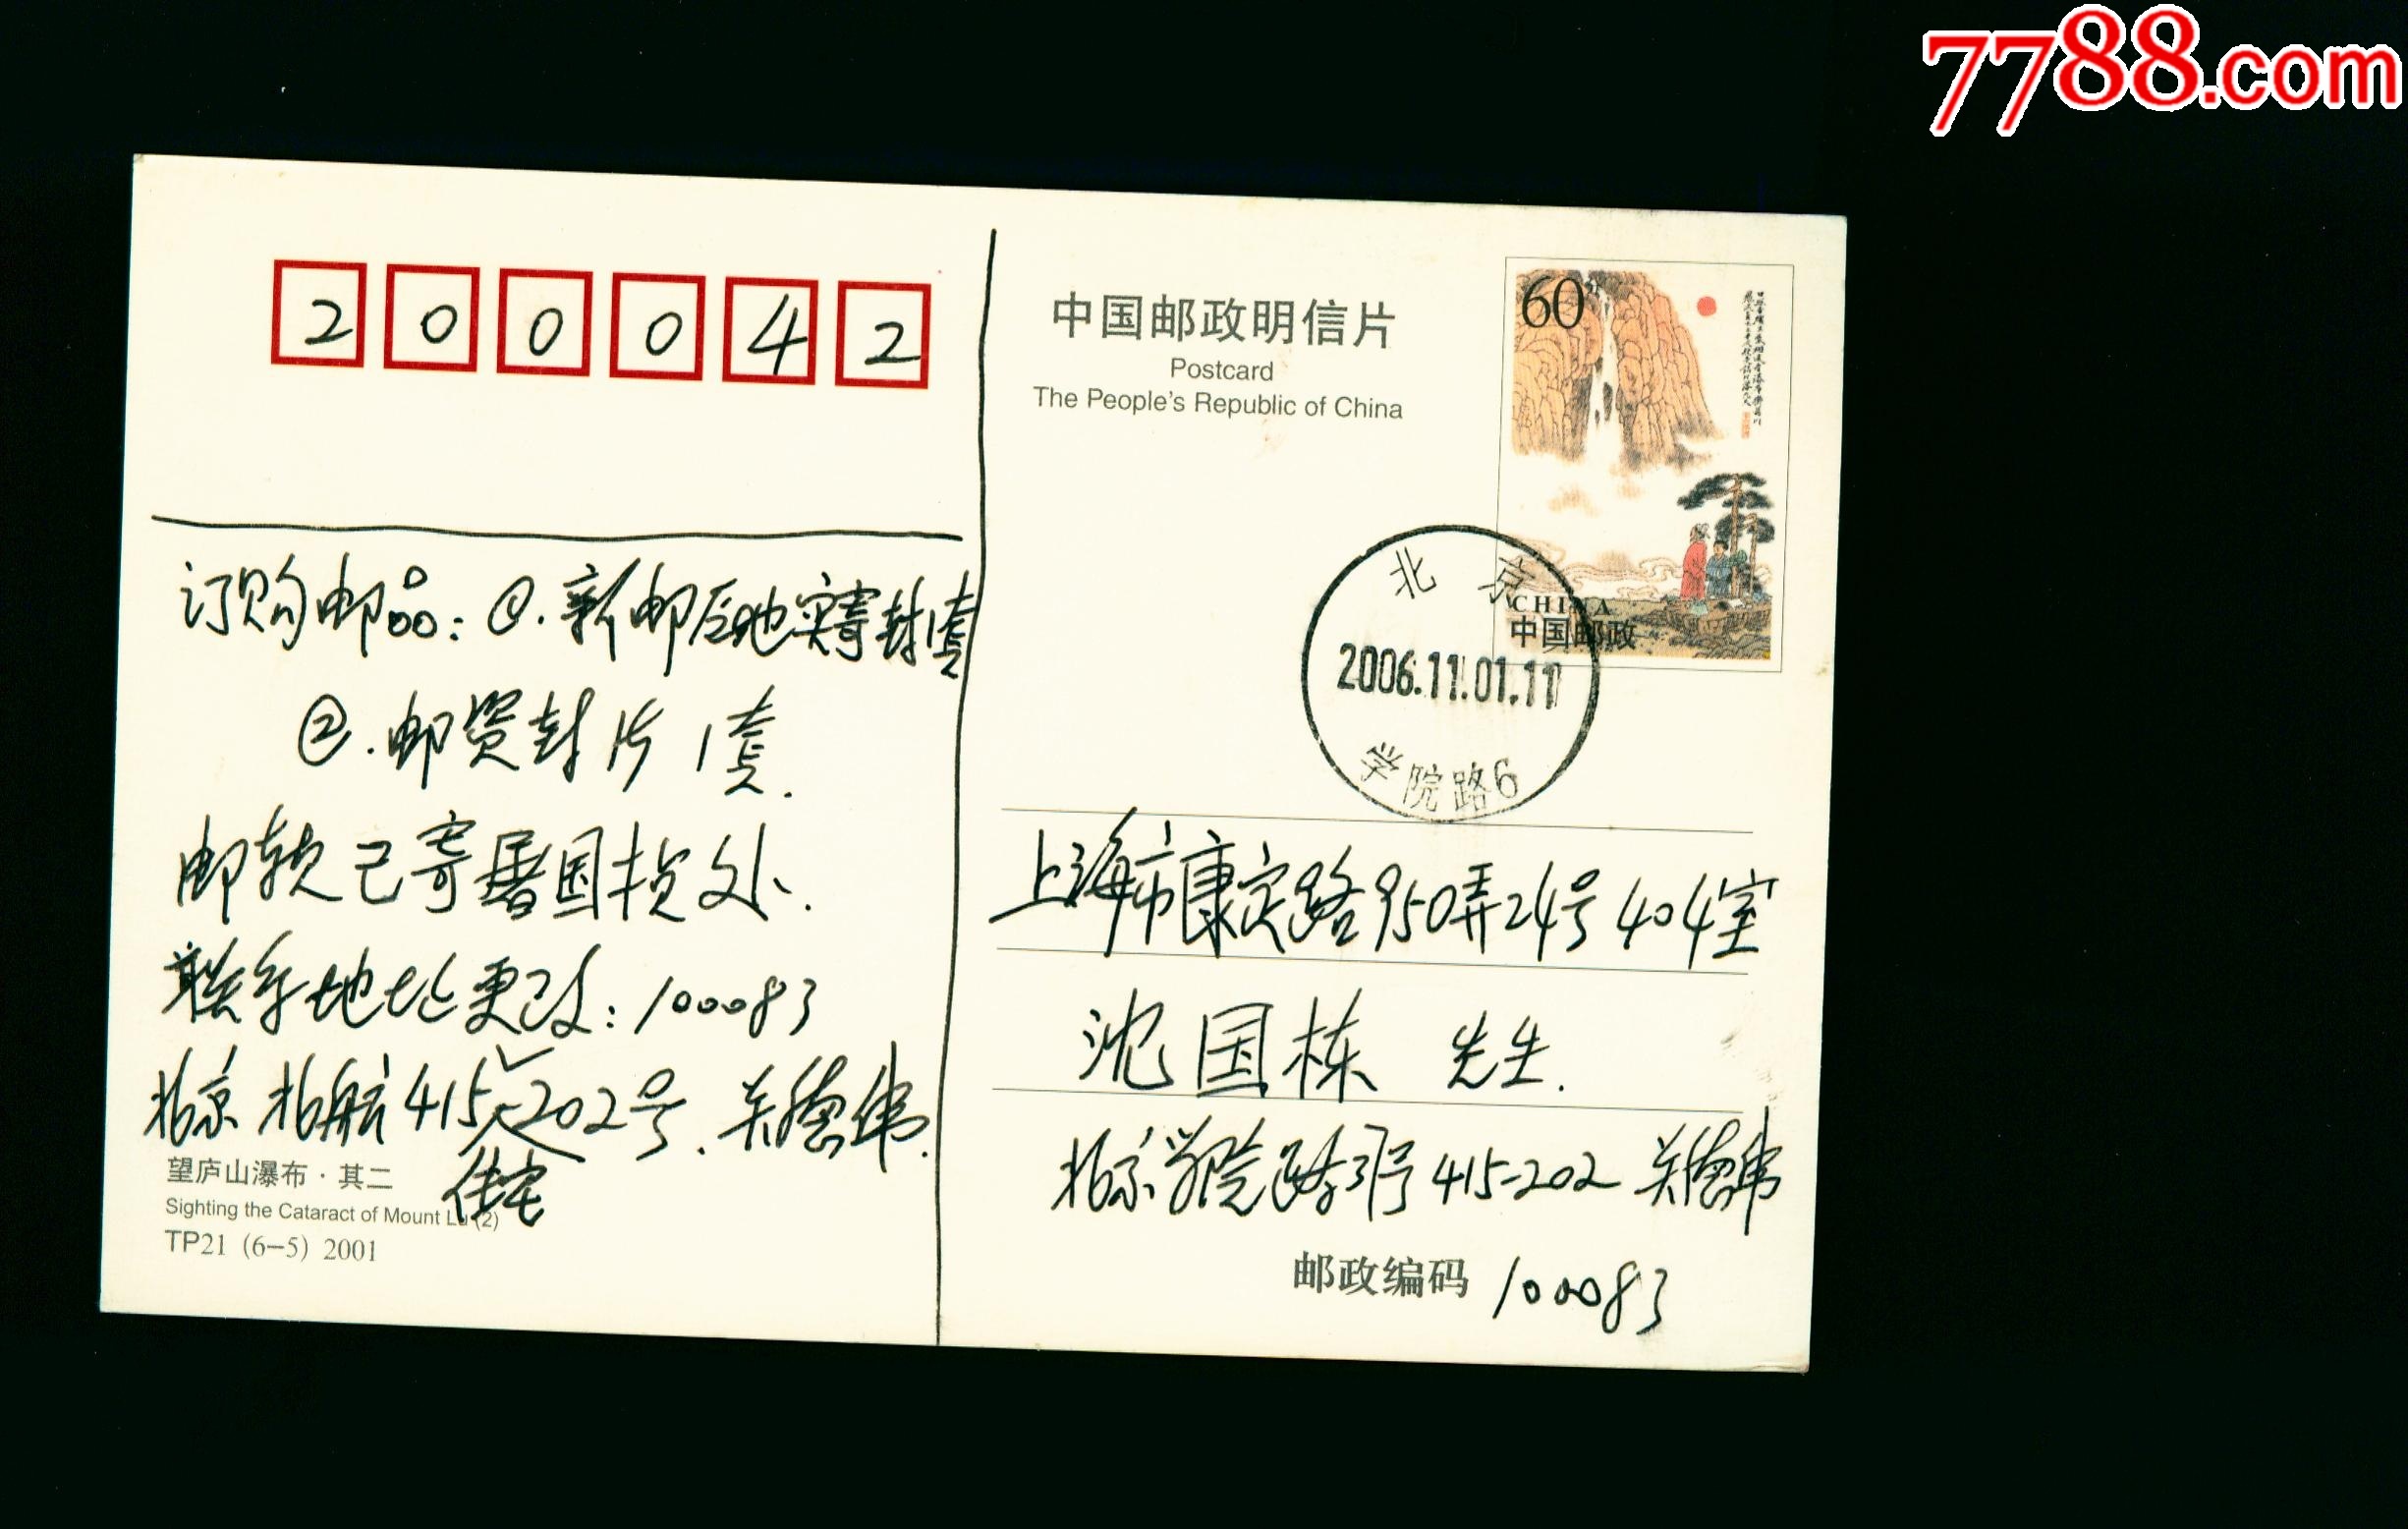 7788.com
200042
中国邮政明信片
Postcard
The People's Republic of China
60分
CHINA
中国邮政
北京
2006.11.01.11
学院路6
订购邮品：①.新邮原地实寄封1套
②.邮资封片1套.
邮款已寄屠国损处.
联系地址更改：100083
北京北航415-202号.关德伟.
住宅
望庐山瀑布·其二
Sighting the Cataract of Mount Lu (2)
TP21 (6-5) 2001
上海市康定路950弄24号404室
沈国栋 先生.
北京学院路37号415-202 关德伟
邮政编码 100083